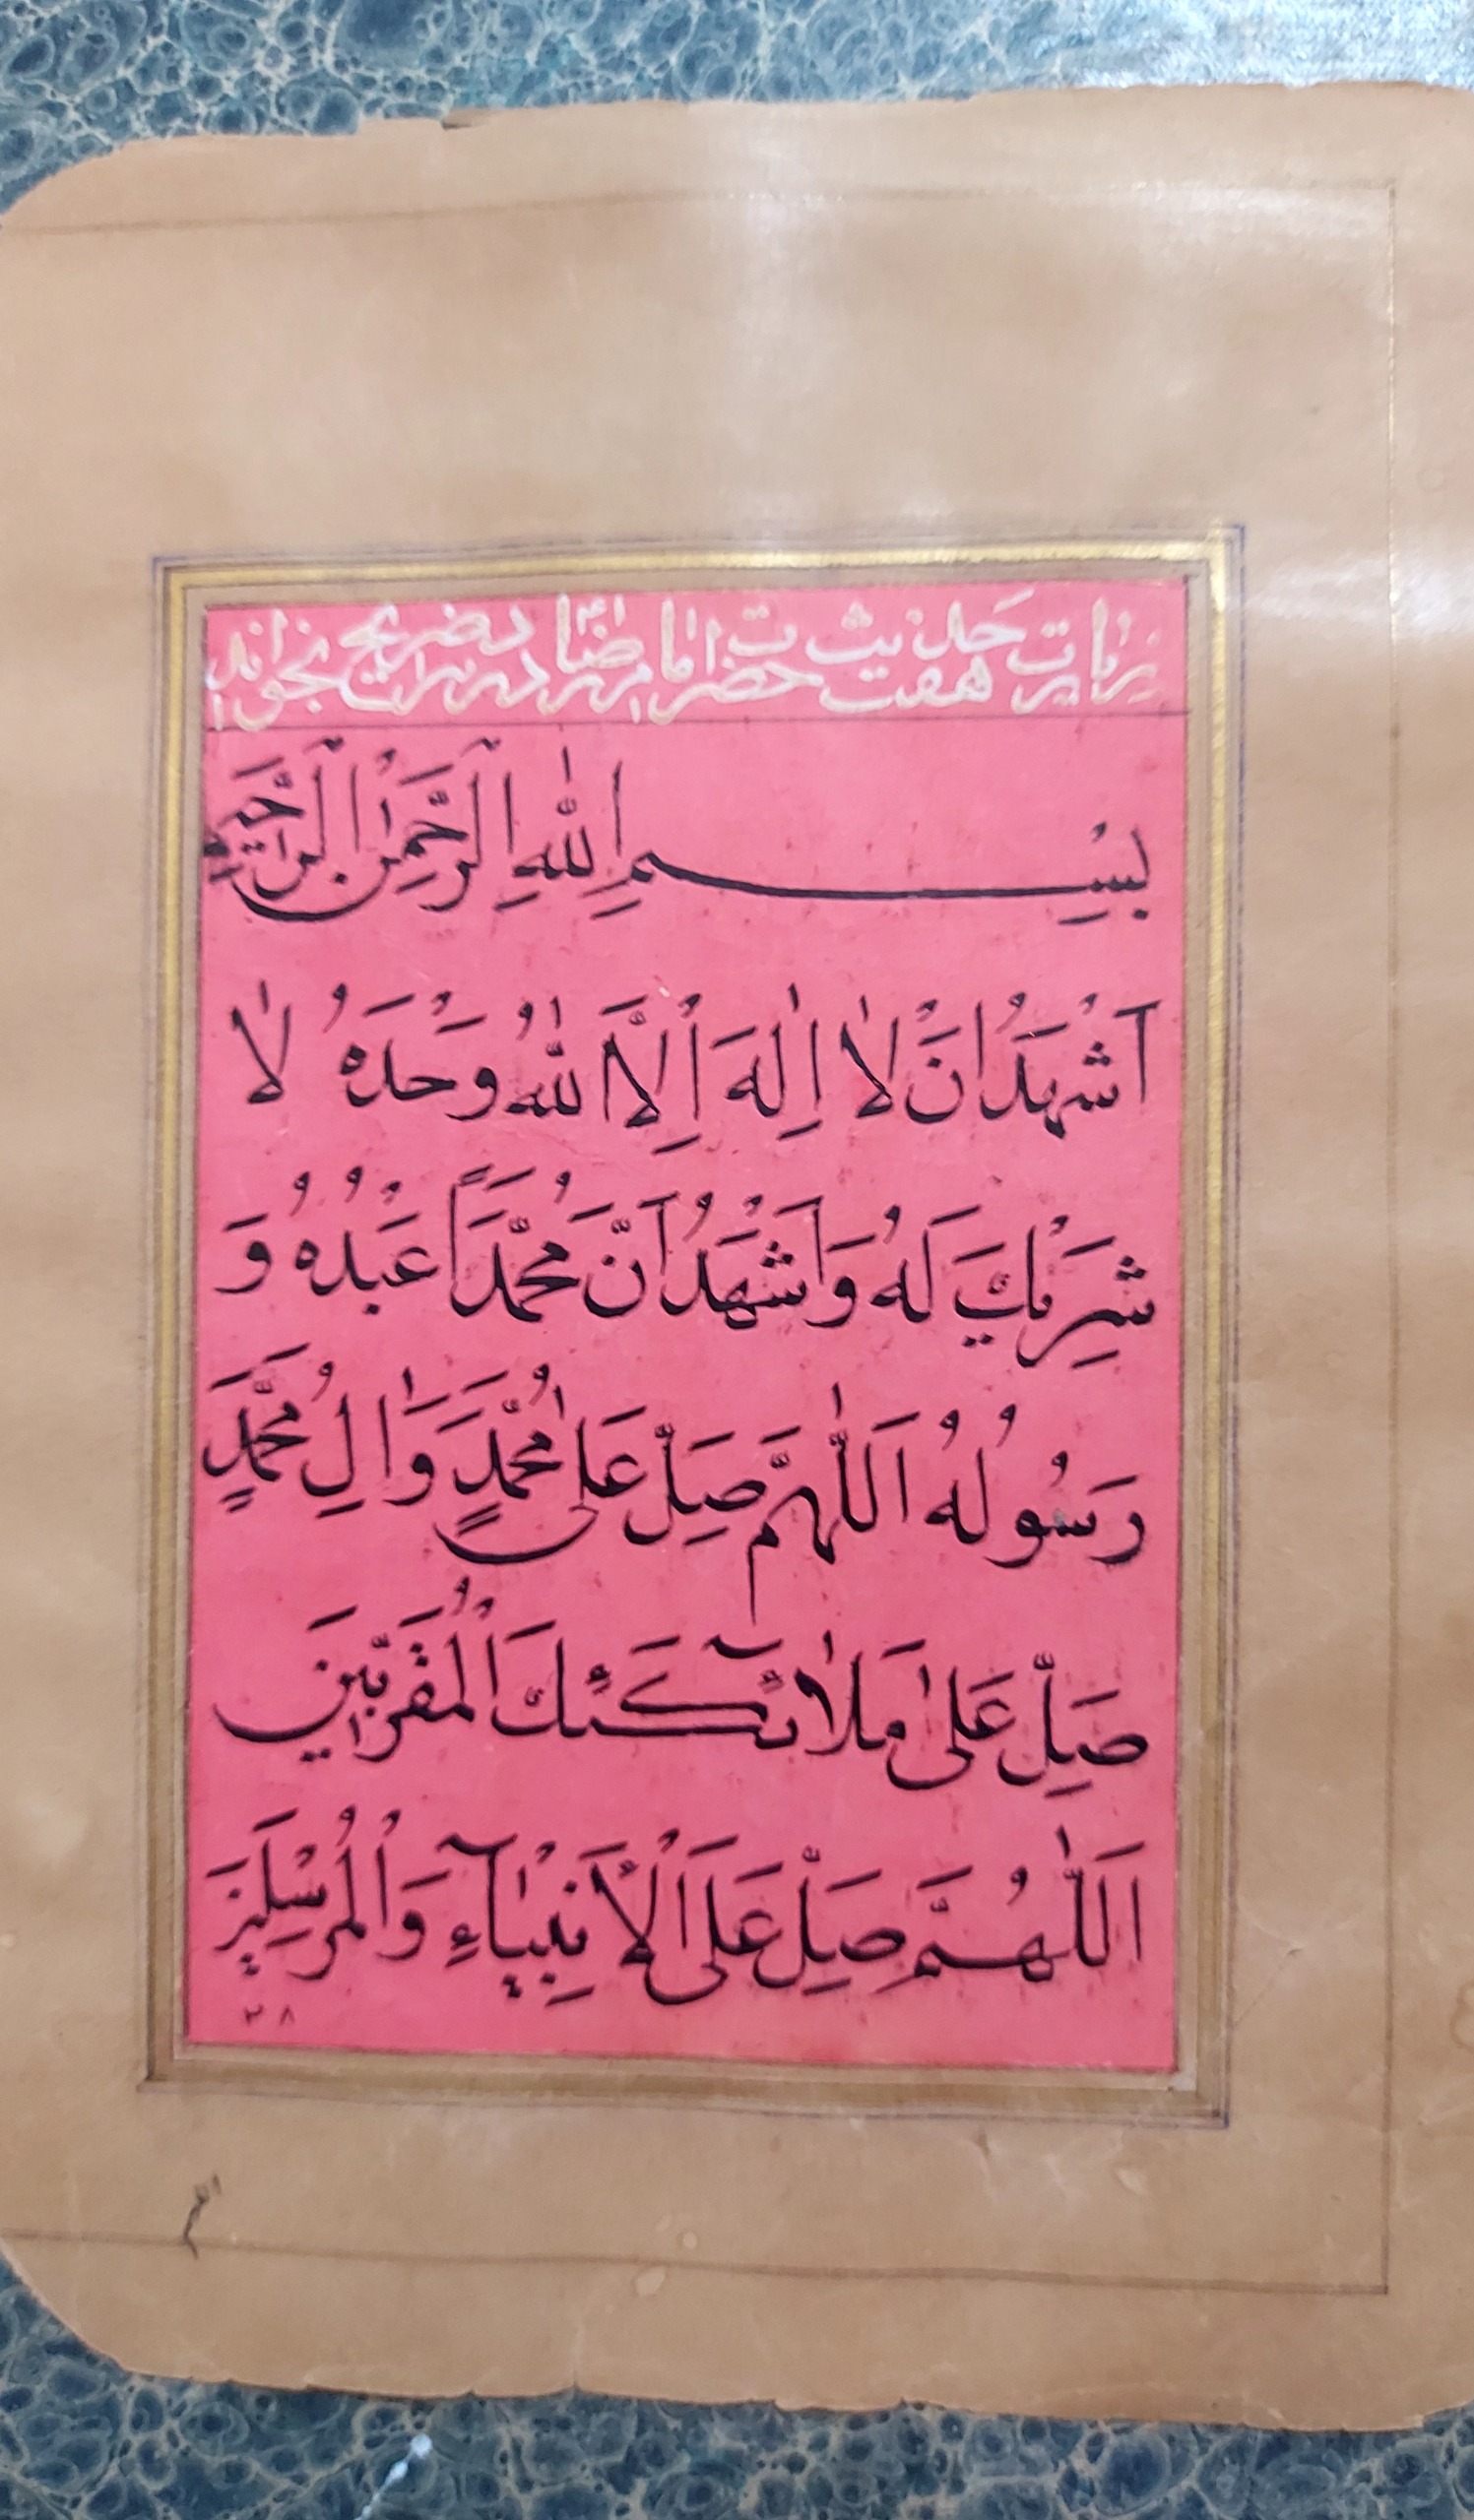 زیارت
هفت
حضرت امام رضا
در
بخواند
بِسْمِ اللهِ الرَّحْمٰنِ الرَّحیمِ
اَشْهَدُ اَنْ لاٰ اِلٰهَ اِلَّا اللهُ وَحْدَهُ لاٰ
شَرِیْكَ لَهُ وَاَشْهَدُ اَنَّ مُحَمَّدَاً عَبْدُهُ وَ
رَسُولُهُ اَللّٰهُمَّ صَلِّ عَلىٰ مُحَمَّدٍ وَاٰلِ مُحَمَّدٍ
صَلِّ عَلىٰ مَلاٰئِكَتِكَ الْمُقَرَّبینَ
اَللّٰهُمَّ صَلِّ عَلَى الْاَنْبِیٰآءِ وَالْمُرْسَلینَ
٢٨